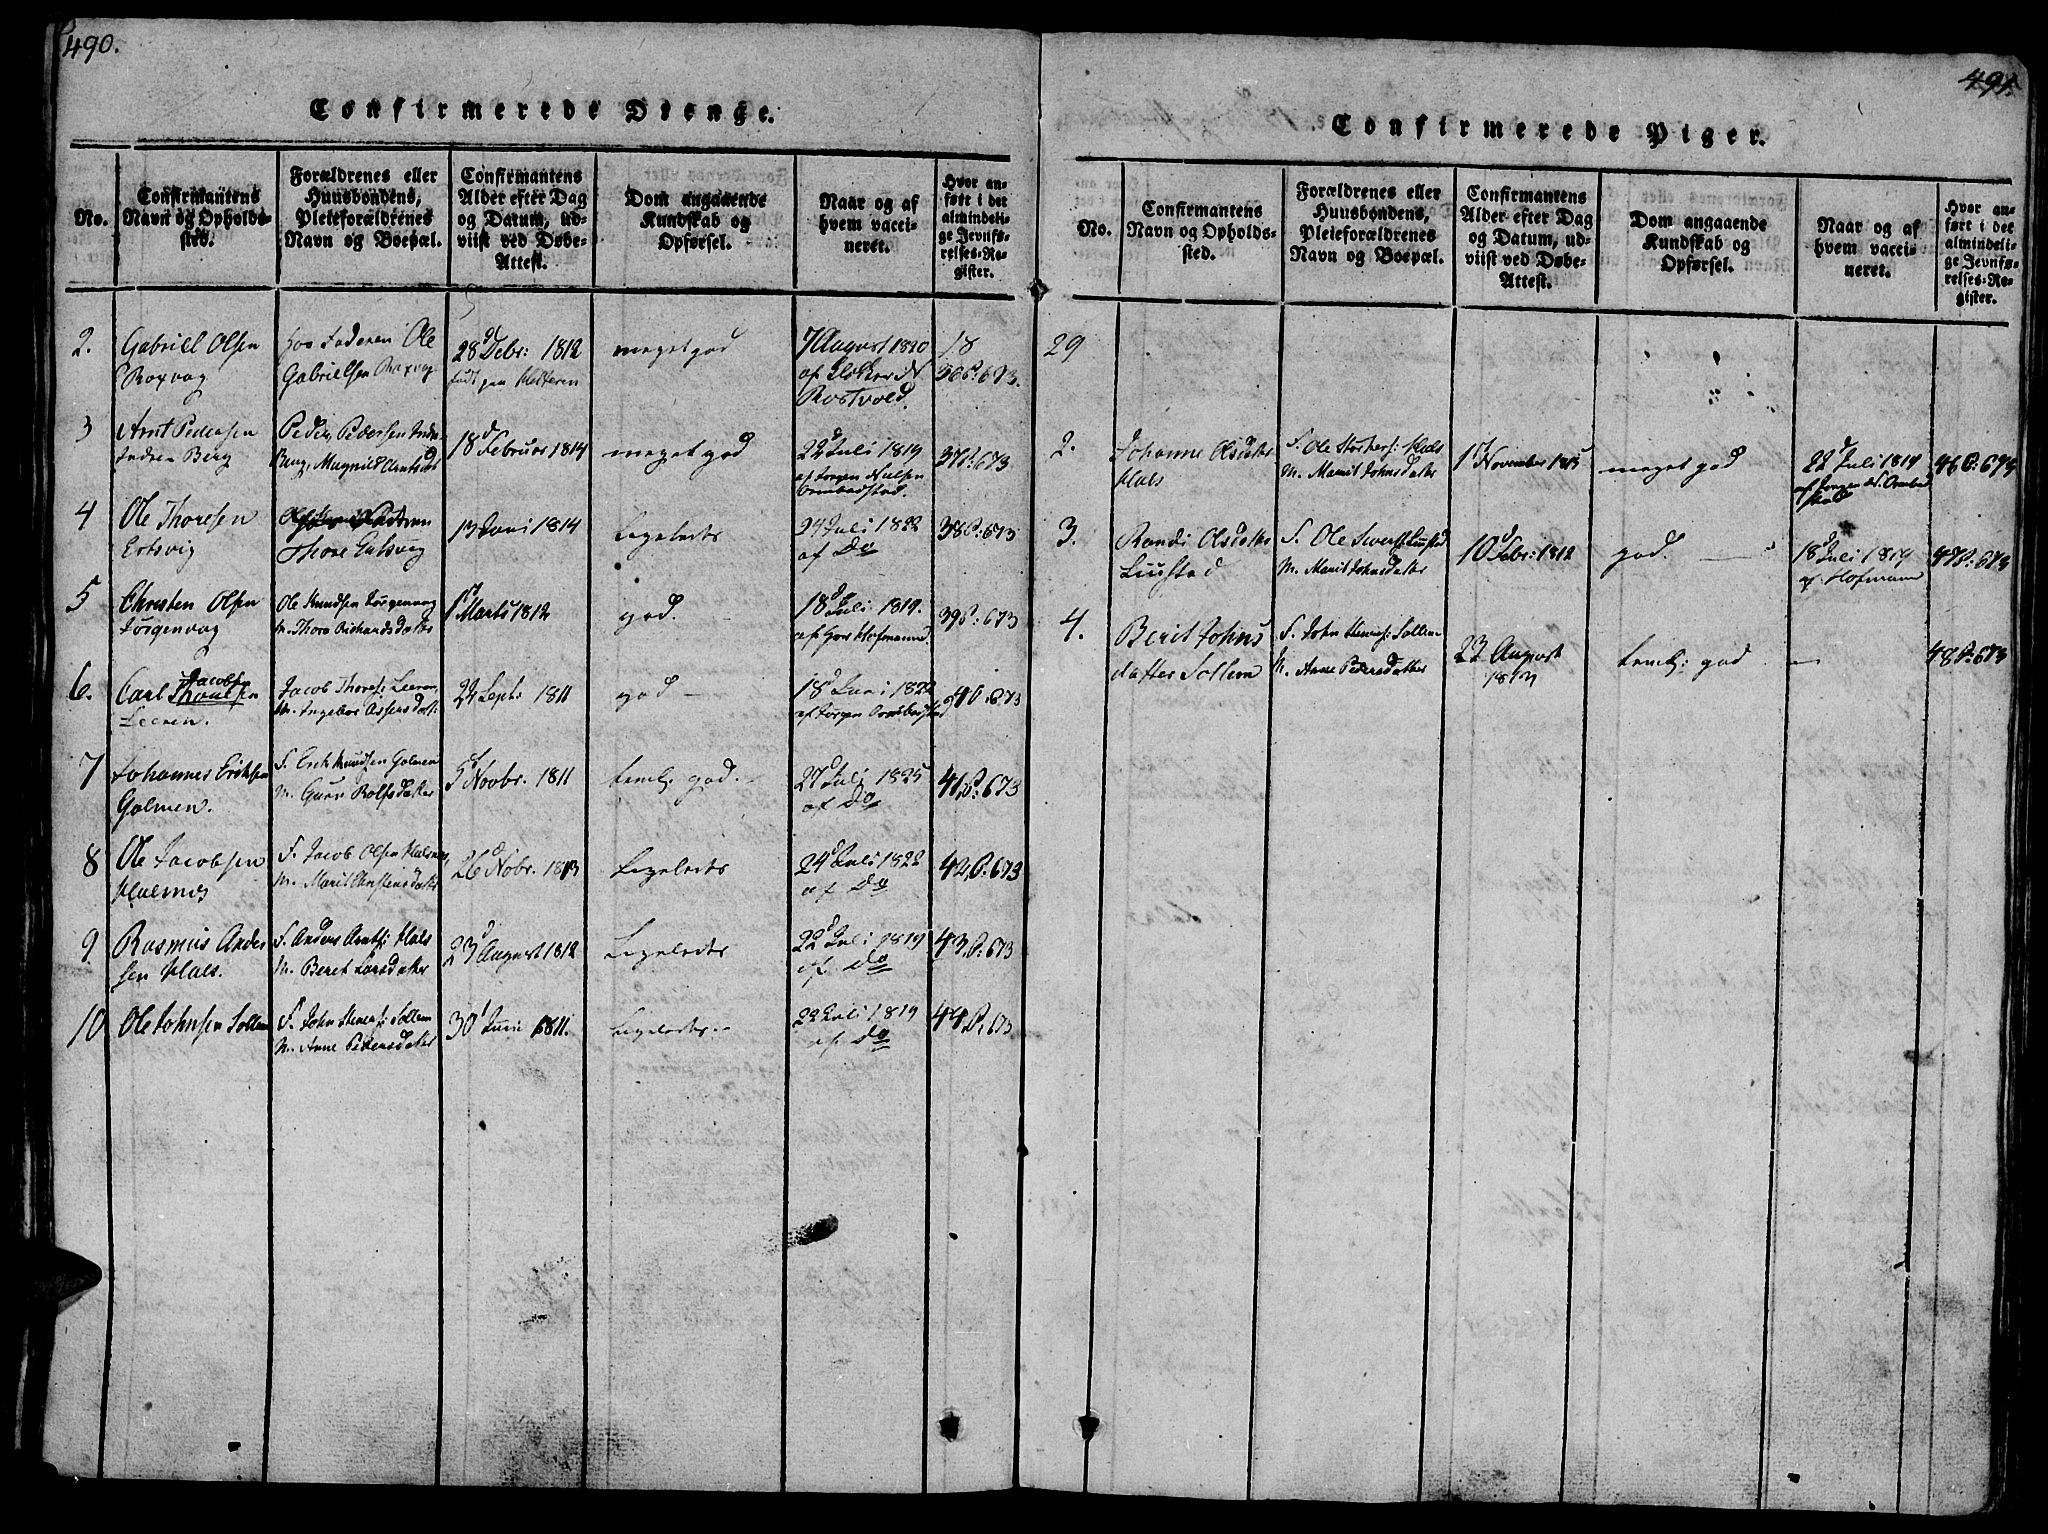 490.
Confirmerede Drenge.
No.
Confirmantens
Navn og Opholds-
sted.
Forældrenes eller
Huusbondens,
Pleieforældrenes
Navn og Boepæl.
Confirmantens
Alder efter Dag
og Datum, ud-
viist ved Døbe-
Attest.
Dom angaaende
Kundskab og
Opførsel.
Naar og af
hvem vacci-
neret.
Hvor an-
ført i det
almindeli-
ge Jevnfø-
relses-Re-
gister.
2.
Gabriel Olsen
hos Faderen Ole
Gabrielsen
28d Debr: 1812
meget god
7 August 1820
af
18
36 P: 673.
3
Arnt Pedersen
Indre Berg
Peder Pedersen Indre
Berg, Magnild Arntsdt
18d Februar 1814
meget god
22d Juli 1819
af Jørgen Nielsen
Ormbostad.
37 P: 673
4
Ole Thoresen
Ertsvig
Thore Ertsvig
13 Juni 1814
Ligeledes
24 Juli 1822
af Do
38 P: 673
5
Christen Olsen
Jørgenvog
Ole Knudsen Jørgenvog
M. Thore Richardsdatter
1 Marts 1812
god.
18d Juli 1819.
af Hofmann
39 P: 673
6.
Carl Jacobsen
Leeren.
Jacob Thores: Leeren
M. Ingebor Assensdat:
22 Sept: 1811
god
18d Juni 1822
af Jørgen Ormbostad
40 P: 673
7
Johannes Eriksen
Golmen.
F. Erik Knudsen Golmen
M. Guru Rolfsdatter
5 Novbr. 1811
teml: god.
27d Juli 1825
af Do
41 P: 673
8
Ole Jacobsen
Halsnes
F. Jacob Olsen Halsnes,
M. Marit Christensdatter
26d Nobr. 1813
Ligeledes
24d Juli 1822
af Do
42 P: 673
9
Rasmus Ander
sen Hals.
F. Anders Arnts: Hals
M. Beret Larsdatter
23d August 1812
Ligeledes
22d Juli 1819
af Do
43 P: 673
10
Ole Johnsen Sollem
F. John Steners: Sollem
M. Anne Pedersdatter
30 Juni 1811.
Ligeledes
22 Juli 1819
af Do
44 P: 673
491.
Confirmerede Piger.
No.
Confirmantens
Navn og Opholds-
sted.
Forældrenes eller
Huusbondens,
Pleieforældrenes
Navn og Boepæl.
Confirmantens
Alder efter Dag
og Datum, ud-
viist ved Døbe-
Attest.
Dom angaaende
Kundskab og
Opførsel.
Naar og af
hvem vacci-
neret.
Hvor an-
ført i det
almindeli-
ge Jevnfø-
relses-Re-
gister.
29
2.
Johanne Olsdatter
Hals
F. Ole Hals
M. Marrit Johnsdatter
1 November 1813
meget god
22d Juli 1819
af Jørgen N. Ormbo
stad
46 P: 673
3.
Randi Olsdatter
Liustad
F. Ole Liustad
M. Marit Johnsdatter
10d Febr: 1812
god.
18d Juli 1819
af Hofmann
47 P: 673
4.
Berit Johns
datter Sollem
F. John Steners: Sollem
M. Anne Pedersdatter
23 August
teml: god
48 P: 673